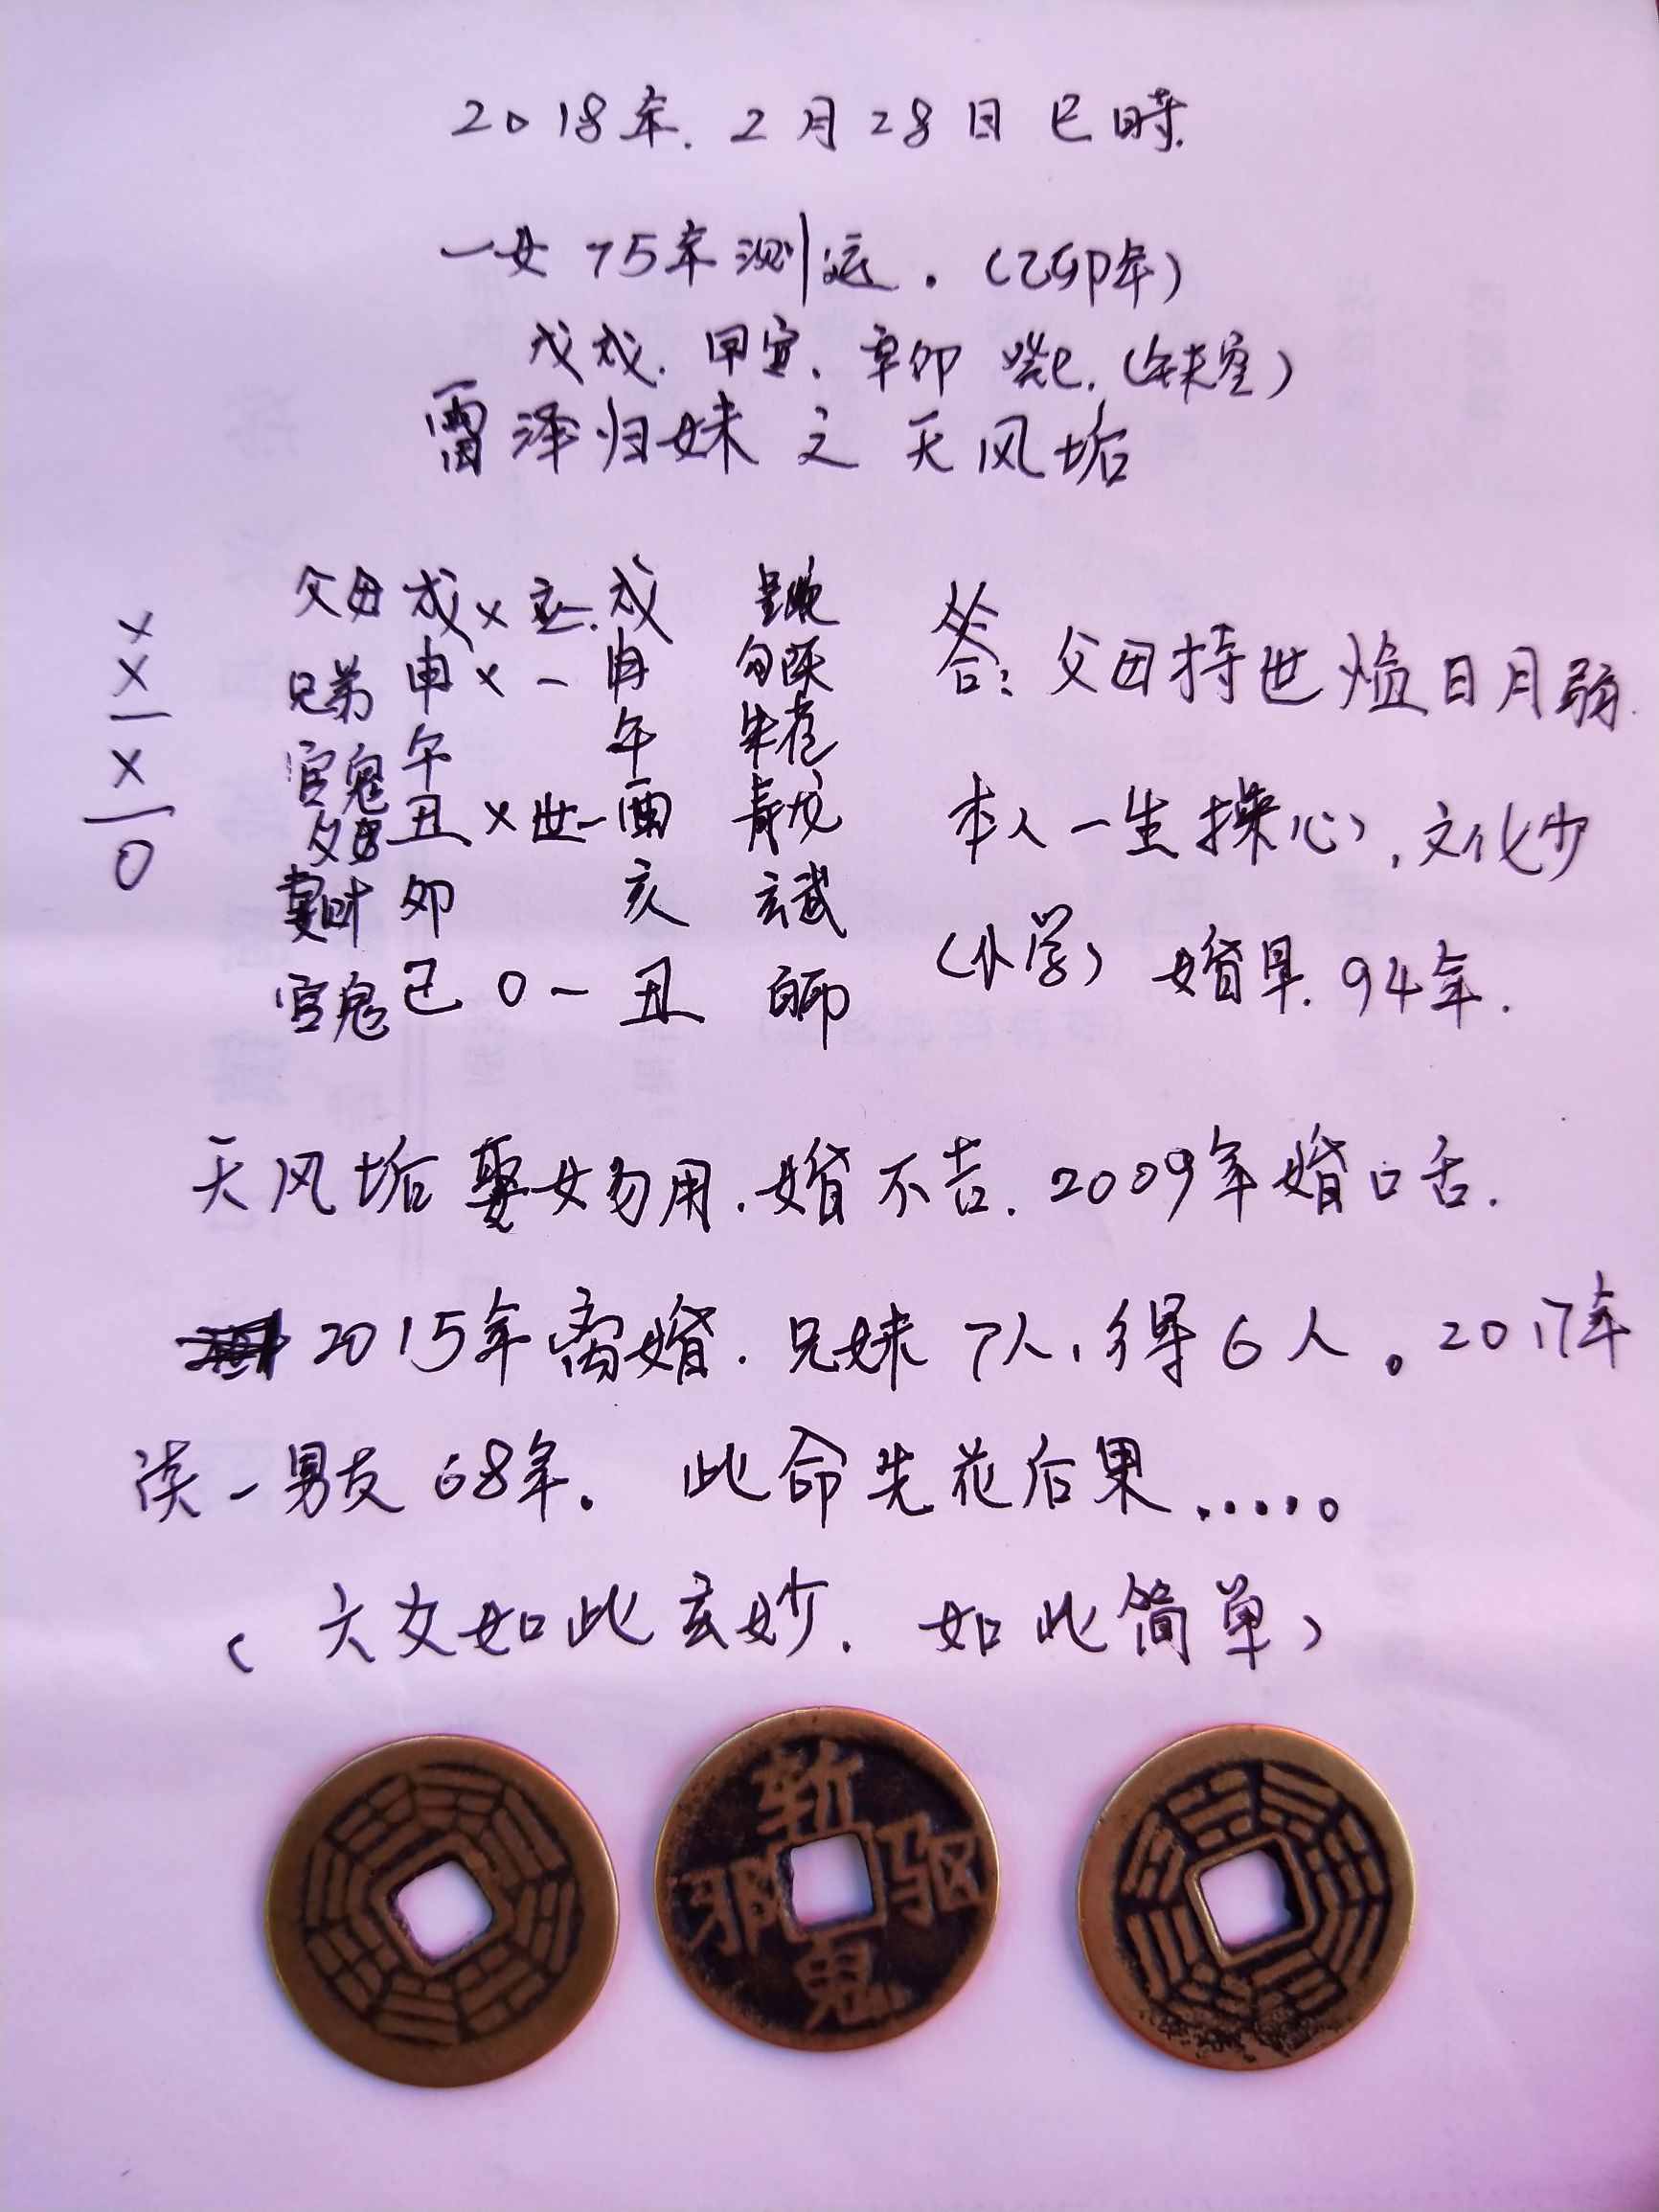 2018年.2月28日巳時.
一女75年测运.(乙卯年)
戊戌.甲寅.辛卯 癸巳.(午未空)
雷泽归妹之天风垢
父母戌×应.戌
兄弟申×-申 勾陈
官鬼午 午 朱雀
父母丑×世-酉 青龙
妻财卯 亥 玄武
官鬼巳0-丑 白虎
×
×
一
×
一
0
答:父母持世临日月弱.
本人一生操心,文化少
(小学)婚早.94年.
天风垢娶女勿用.婚不吉.2009年婚口舌.
2015年离婚.兄妹7人,得6人。2017年
谈一男友68年。此命先花后果.....。
(六爻如此玄妙.如此简单)
斩
邪 驱
鬼